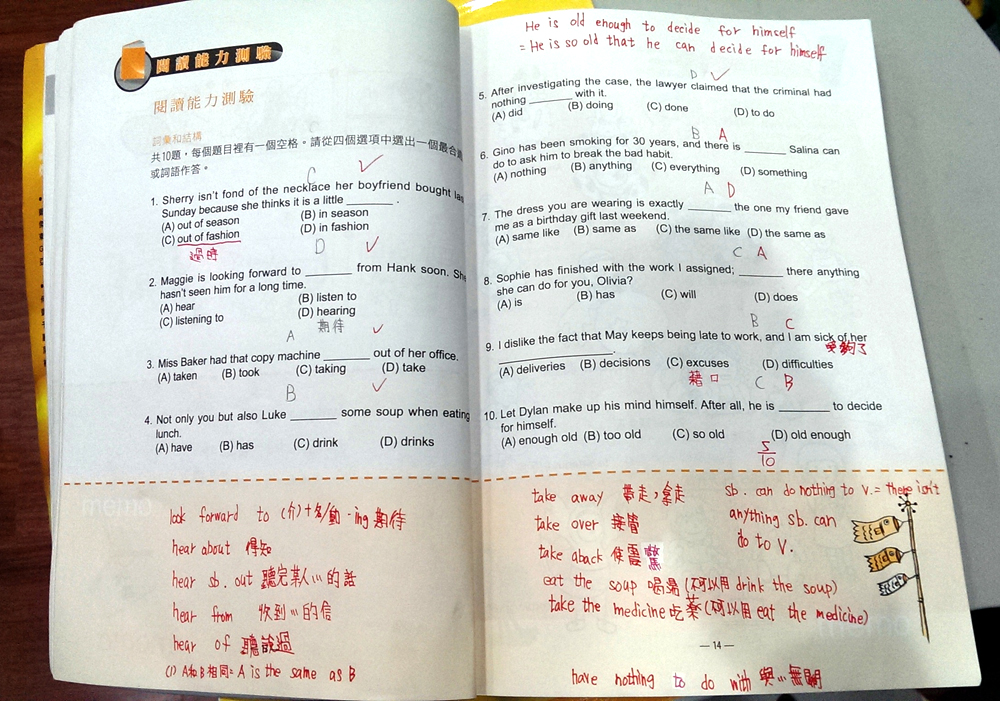 閱讀能力測驗
閱讀能力測驗
詞彙和結構
共10題，每個題目裡有一個空格。請從四個選項中選出一個最合適
或詞語作答。
C ✓
1. Sherry isn't fond of the necklace her boyfriend bought las
Sunday because she thinks it is a little ________ .
(A) out of season (B) in season
(C) out of fashion (D) in fashion
過時 D ✓
2. Maggie is looking forward to ________ from Hank soon. She
hasn't seen him for a long time.
(A) hear (B) listen to
(C) listening to (D) hearing
期待
A ✓
3. Miss Baker had that copy machine ________ out of her office.
(A) taken (B) took (C) taking (D) take
B ✓
4. Not only you but also Luke ________ some soup when eating
lunch.
(A) have (B) has (C) drink (D) drinks
look forward to (介)+名/動-ing 期待
hear about 得知
hear sb. out 聽完某人…的話
hear from 收到…的信
hear of 聽說過
(1) A和B相同= A is the same as B
He is old enough to decide for himself
= He is so old that he can decide for himself
D ✓
5. After investigating the case, the lawyer claimed that the criminal had
nothing ________ with it.
(A) did (B) doing (C) done (D) to do
B A
6. Gino has been smoking for 30 years, and there is ________ Salina can
do to ask him to break the bad habit.
(A) nothing (B) anything (C) everything (D) something
A D
7. The dress you are wearing is exactly ________ the one my friend gave
me as a birthday gift last weekend.
(A) same like (B) same as (C) the same like (D) the same as
C A
8. Sophie has finished with the work I assigned; ________ there anything
she can do for you, Olivia?
(A) is (B) has (C) will (D) does
B C
9. I dislike the fact that May keeps being late to work, and I am sick of her
________________ .
受夠了
(A) deliveries (B) decisions (C) excuses (D) difficulties
藉口 C B
10. Let Dylan make up his mind himself. After all, he is ________ to decide
for himself.
(A) enough old (B) too old (C) so old (D) old enough
5/10
take away 帶走，拿走
take over 接管
take aback 使震驚
eat the soup 喝湯 (不可以用 drink the soup)
take the medicine 吃藥 (不可以用 eat the medicine)
sb. can do nothing to V. = there isn't
anything sb. can
do to V.
— 14 —
have nothing to do with 與…無關